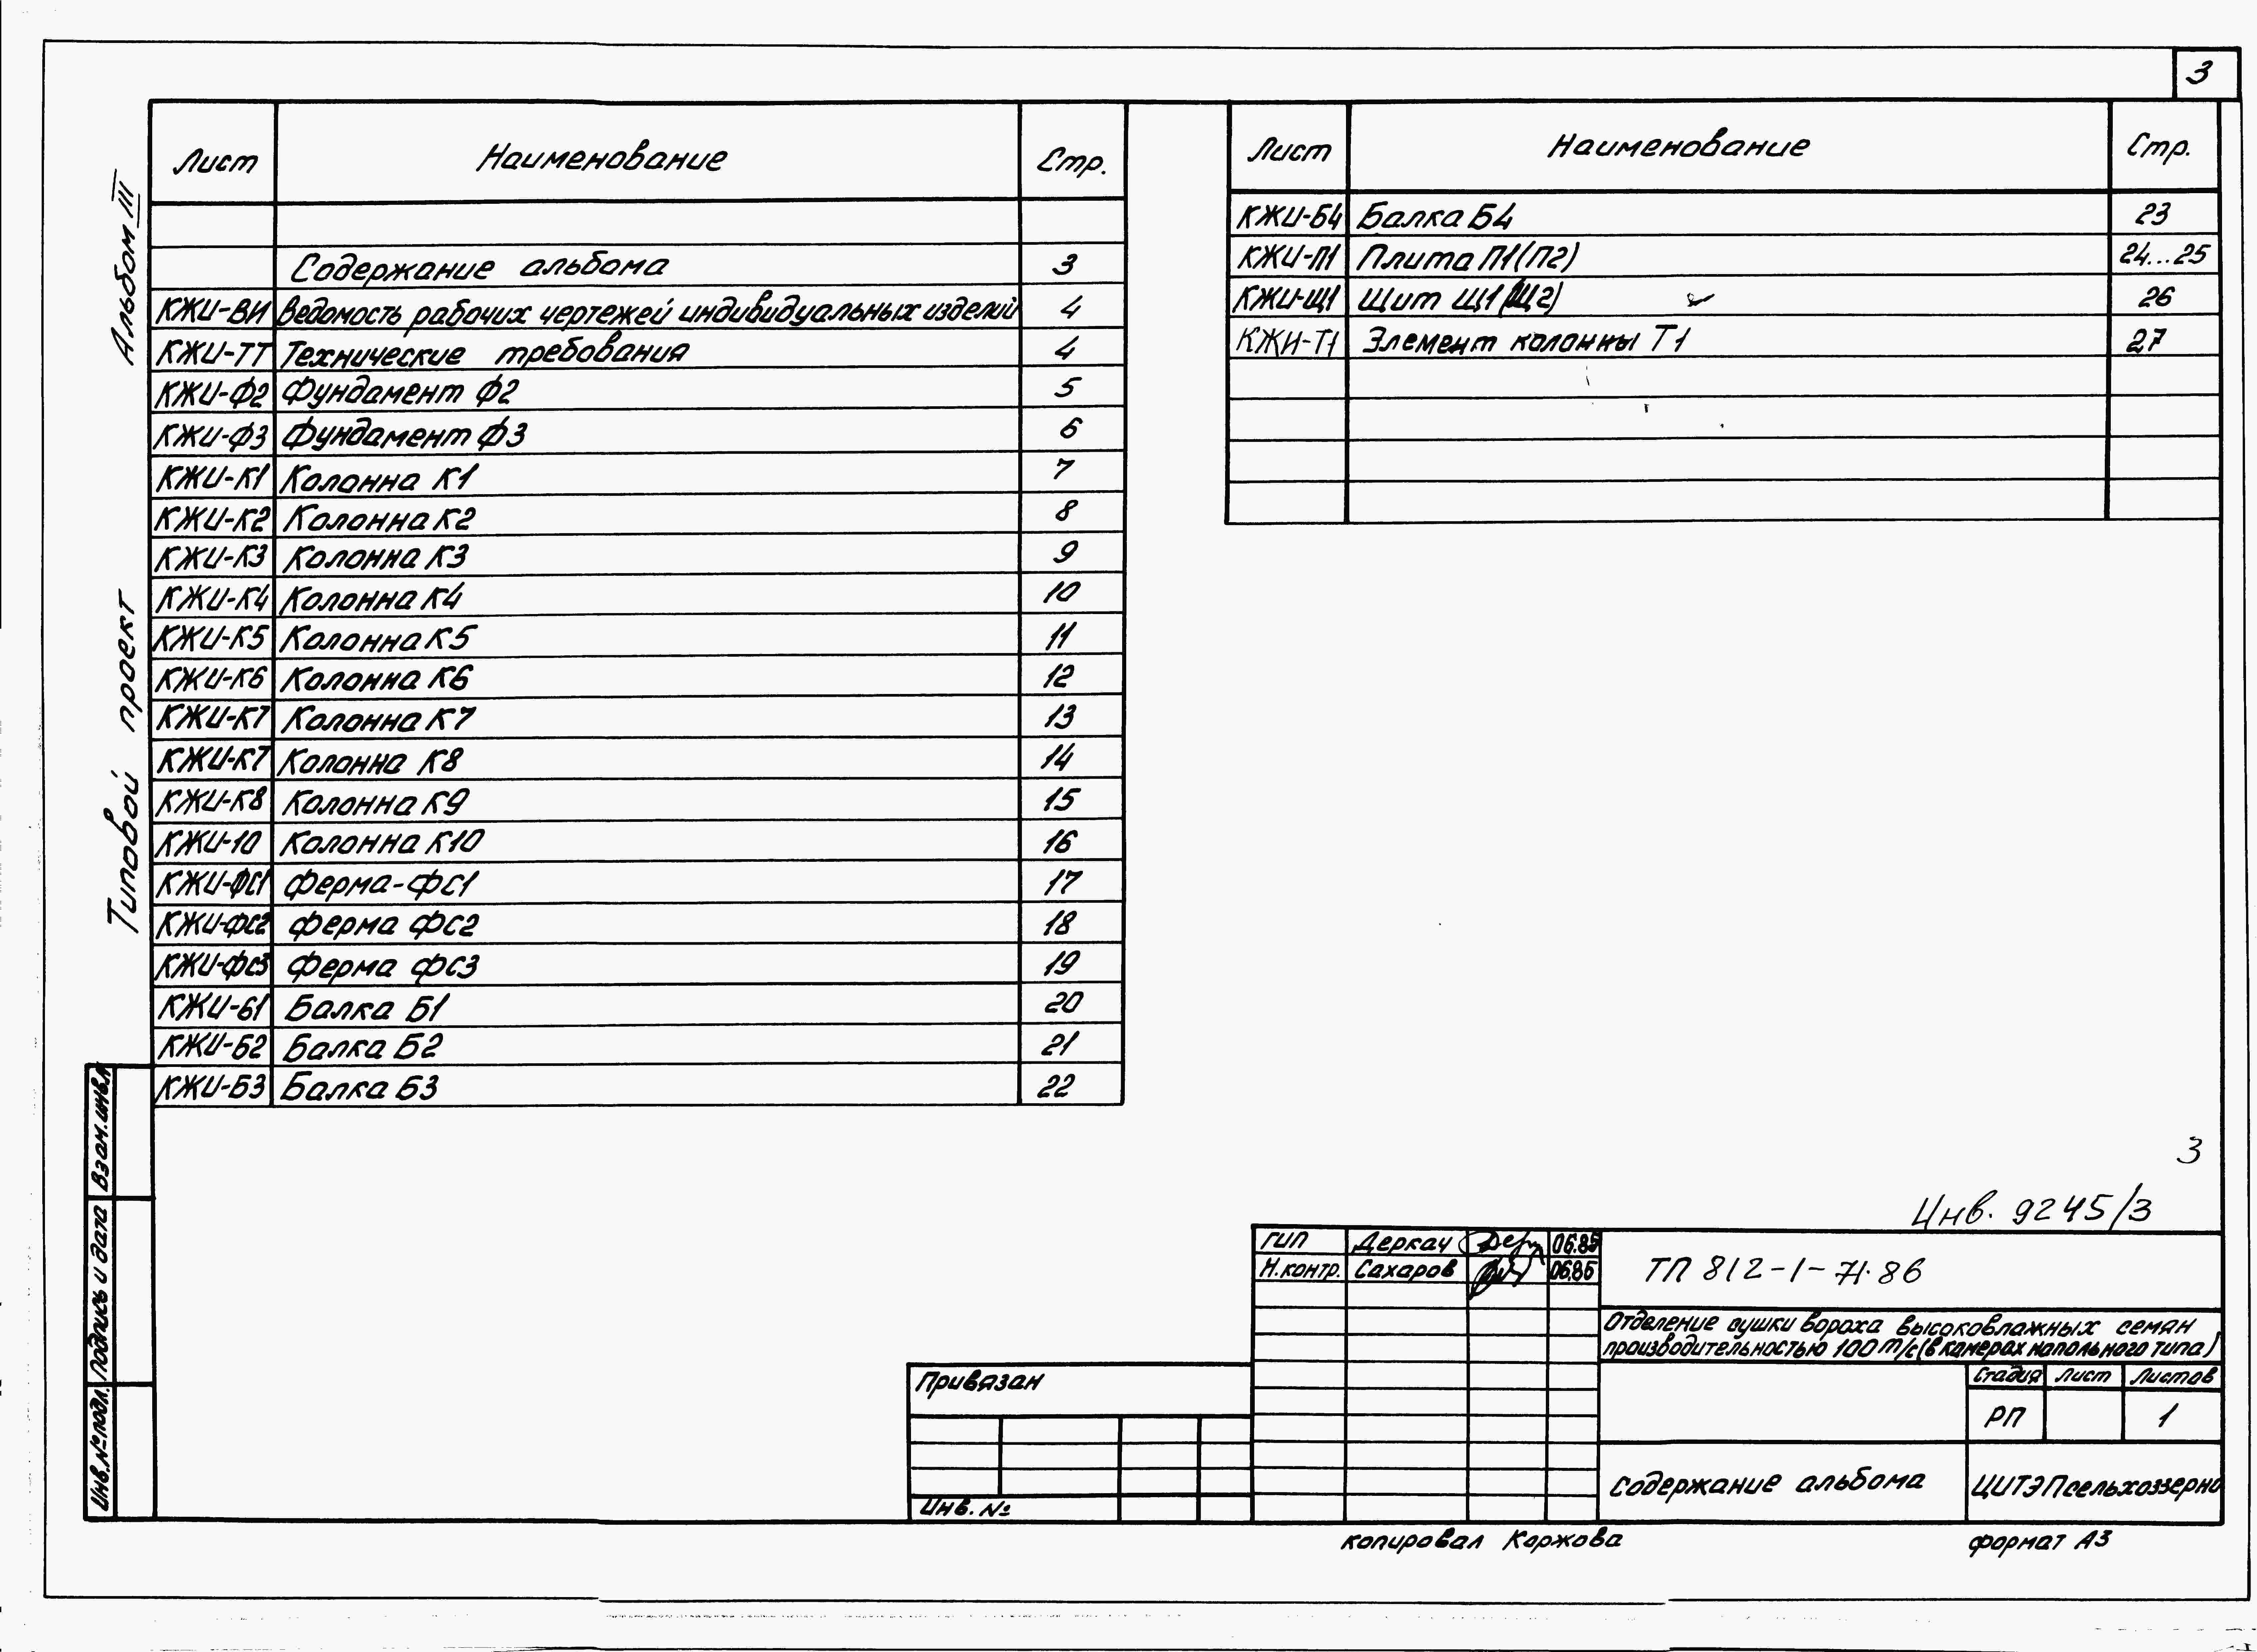 3
Альбом III
Типовой проект
Лист Наименование Стр.
Содержание альбома 3
КЖИ-ВИ Ведомость рабочих чертежей индивидуальных изделий 4
КЖИ-ТТ Технические требования 4
КЖИ-Ф2 Фундамент Ф2 5
КЖИ-Ф3 Фундамент Ф3 6
КЖИ-К1 Колонна К1 7
КЖИ-К2 Колонна К2 8
КЖИ-К3 Колонна К3 9
КЖИ-К4 Колонна К4 10
КЖИ-К5 Колонна К5 11
КЖИ-К6 Колонна К6 12
КЖИ-К7 Колонна К7 13
КЖИ-К7 Колонна К8 14
КЖИ-К8 Колонна К9 15
КЖИ-10 Колонна К10 16
КЖИ-ФС1 Ферма-ФС1 17
КЖИ-ФС2 Ферма ФС2 18
КЖИ-ФС3 Ферма ФС3 19
КЖИ-Б1 Балка Б1 20
КЖИ-Б2 Балка Б2 21
КЖИ-Б3 Балка Б3 22
Лист Наименование Стр.
КЖИ-Б4 Балка Б4 23
КЖИ-П1 Плита П1(П2) 24...25
КЖИ-Щ1 Щит Щ1(Щ2) 26
КЖИ-Т1 Элемент колонны Т1 27
Взам.инв.№
Подпись и дата
Инв.№подл.
3
Инв. 9245/3
ГИП Деркач 06.85
Н.контр. Сахаров 06.85
ТП 812-1-71.86
Отделение сушки вороха высоковлажных семян
производительностью 100 т/с (в камерах напольного типа)
Стадия Лист Листов
РП 1
Привязан
Инв. №
Содержание альбома
ЦИТЭПсельхоззерно
копировал Коржова
формат А3